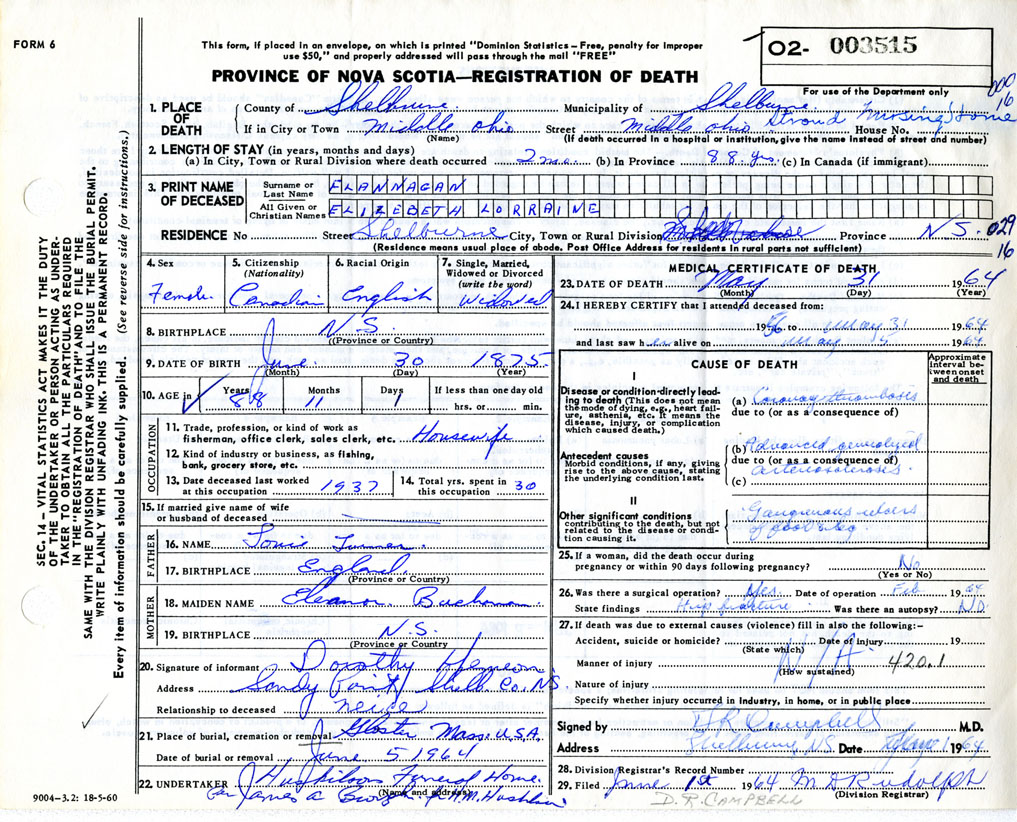 FORM 6
This form, if placed in an envelope, on which is printed "Dominion Statistics – Free, penalty for improper
use $50," and properly addressed will pass through the mail "FREE"
02- 003515
For use of the Department only
PROVINCE OF NOVA SCOTIA—REGISTRATION OF DEATH
000
16
1. PLACE OF DEATH
County of Shelburne Municipality of Shelburne
Stroud Nursing Home
If in City or Town Middle Ohio Street Middle Ohio House No.
(Name) (If death occurred in a hospital or institution, give the name instead of street and number)
2. LENGTH OF STAY (in years, months and days)
(a) In City, Town or Rural Division where death occurred 2 mo. (b) In Province 88 yrs. (c) In Canada (if immigrant)
3. PRINT NAME OF DECEASED
Surname or Last Name FLANNAGAN
All Given or Christian Names ELIZEBETH LORRAINE
RESIDENCE No Street Shelburne City, Town or Rural Division Province N S.
029
16
(Residence means usual place of abode. Post Office Address for residents in rural parts not sufficient)
4. Sex Female
5. Citizenship (Nationality) Canadian
6. Racial Origin English
7. Single, Married, Widowed or Divorced (write the word) Widowed
8. BIRTHPLACE N S.
(Province or Country)
9. DATE OF BIRTH June 30 1875
(Month) (Day) (Year)
10. AGE in Years 88 Months 11 Days 1 If less than one day old hrs. or min.
OCCUPATION
11. Trade, profession, or kind of work as fisherman, office clerk, sales clerk, etc. Housewife
12. Kind of industry or business, as fishing, bank, grocery store, etc.
13. Date deceased last worked at this occupation 1937
14. Total yrs. spent in this occupation 30
15. If married give name of wife or husband of deceased
FATHER
16. NAME Turner
17. BIRTHPLACE England
(Province or Country)
MOTHER
18. MAIDEN NAME Eleanor
19. BIRTHPLACE N.S.
(Province or Country)
20. Signature of informant Dorothy
Address Sandy Point, Shelb. Co., N.S.
Relationship to deceased neice
21. Place of burial, cremation or removal Gloster Mass. U.S.A.
Date of burial or removal June 5 1964
22. UNDERTAKER Funeral Home.
(Name and address)
James A
9004–3.2: 18-5-60
MEDICAL CERTIFICATE OF DEATH
23. DATE OF DEATH May 31 1964
(Month) (Day) (Year)
24. I HEREBY CERTIFY that I attended deceased from:
1956 to May 31 1964
and last saw her alive on May 1964
CAUSE OF DEATH
Approximate interval between onset and death
I
Disease or condition directly leading to death (This does not mean the mode of dying, e.g., heart failure, asthenia, etc. It means the disease, injury, or complication which caused death.)
(a) Coronary thrombosis
due to (or as a consequence of)
Antecedent causes
Morbid conditions, if any, giving rise to the above cause, stating the underlying condition last.
(b) Advanced generalized
due to (or as a consequence of)
arteriosclerosis.
(c)
II
Other significant conditions contributing to the death, but not related to the disease or condition causing it.
Gangrenous ulcers
of foot & leg
25. If a woman, did the death occur during pregnancy or within 90 days following pregnancy? No
(Yes or No)
26. Was there a surgical operation? Yes. Date of operation Feb 1964
State findings Hip fracture Was there an autopsy? NO
27. If death was due to external causes (violence) fill in also the following:–
Accident, suicide or homicide? Date of injury 19
(State which)
N/A.
Manner of injury 420.1
(How sustained)
Nature of injury
Specify whether injury occurred in industry, in home, or in public place
Signed by D R Campbell M.D.
Address Shelburne, NS. Date 1964
28. Division Registrar's Record Number
29. Filed June 1st 1964 M D Rudolph
(Division Registrar)
D. R. CAMPBELL
SEC. 14 – VITAL STATISTICS ACT MAKES IT THE DUTY
OF THE UNDERTAKER OR PERSON ACTING AS UNDER-
TAKER TO OBTAIN ALL THE PARTICULARS REQUIRED
IN THE "REGISTRATION OF DEATH" AND TO FILE THE
SAME WITH THE DIVISION REGISTRAR WHO SHALL ISSUE THE BURIAL PERMIT.
WRITE PLAINLY WITH UNFADING INK. THIS IS A PERMANENT RECORD.
Every item of information should be carefully supplied. (See reverse side for instructions.)